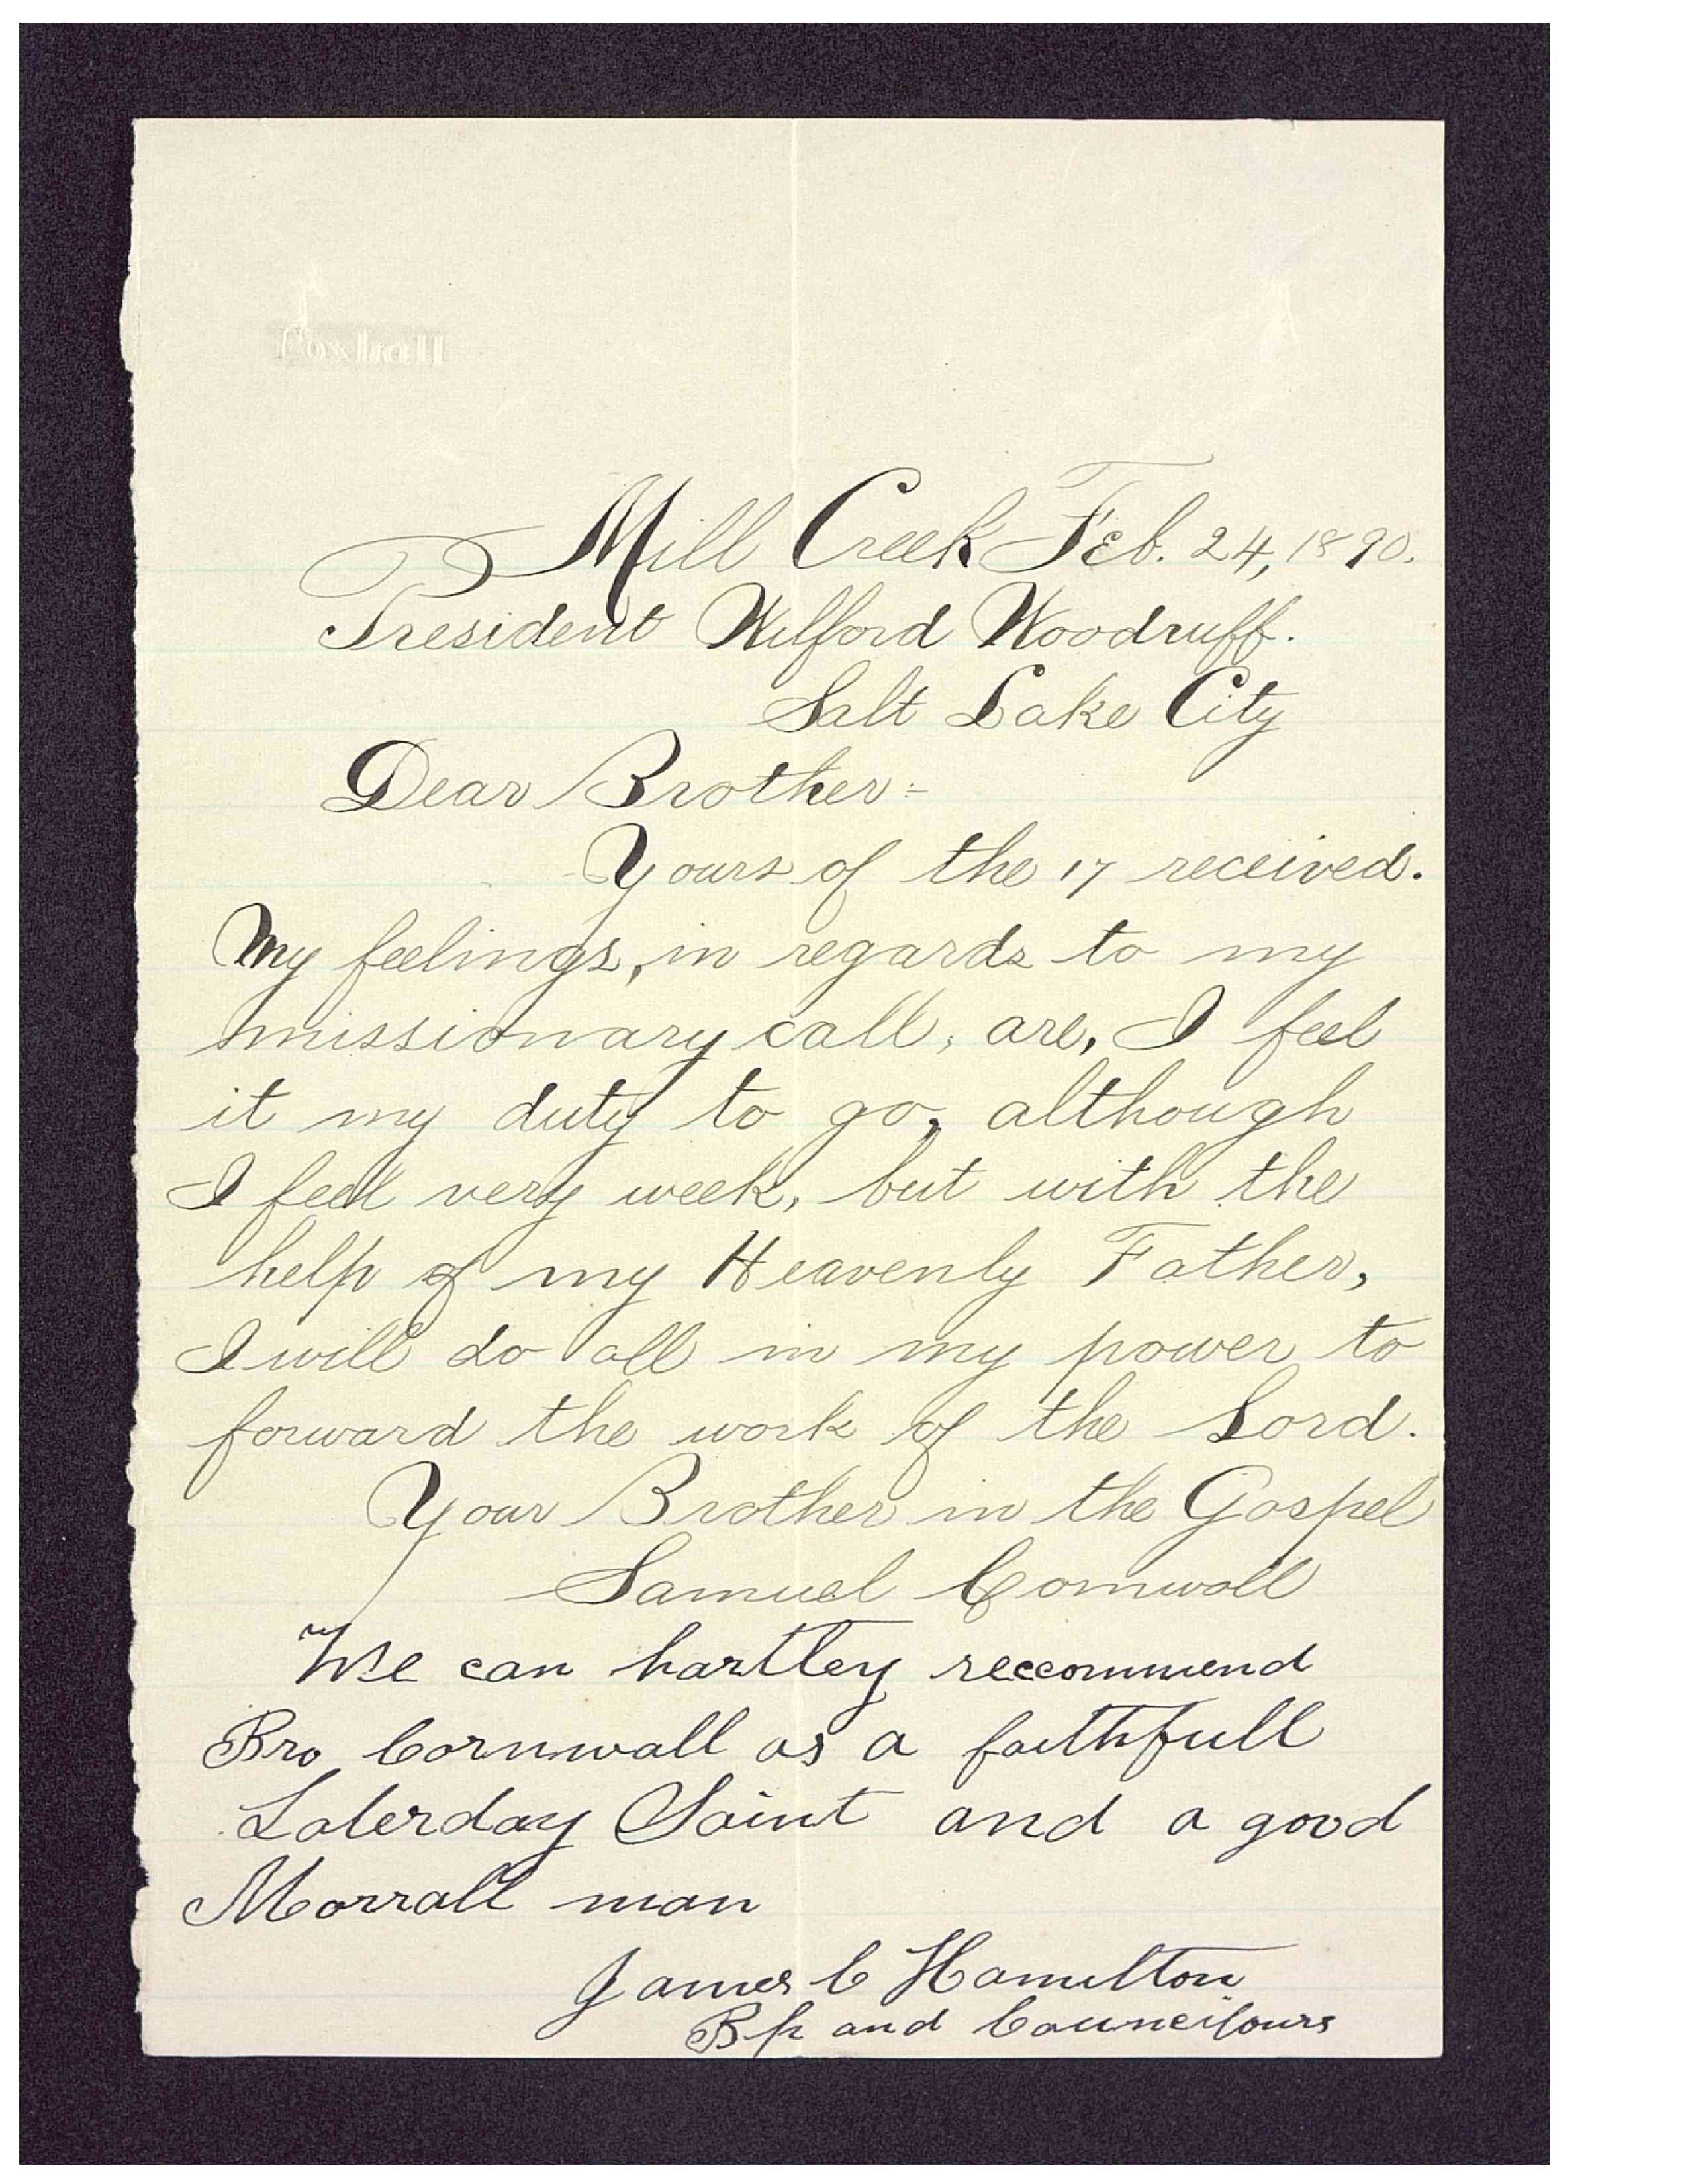 Foxhall
Mill Creek Feb. 24, 1890.
President Wilford Woodruff.
Salt Lake City
Dear Brother:-
Yours of the 17 received.
My feelings, in regards to my
missionary call, are, I feel
it my duty to go, although
I feel very week, but with the
help of my Heavenly Father,
I will do all in my power to
forward the work of the Lord.
Your Brother in the Gospel
Samuel Cornwall
We can hartley reccommend
Bro Cornwall as a faithfull
Laterday Saint and a good
Morrall man
James C Hamilton
Bp and Councilours